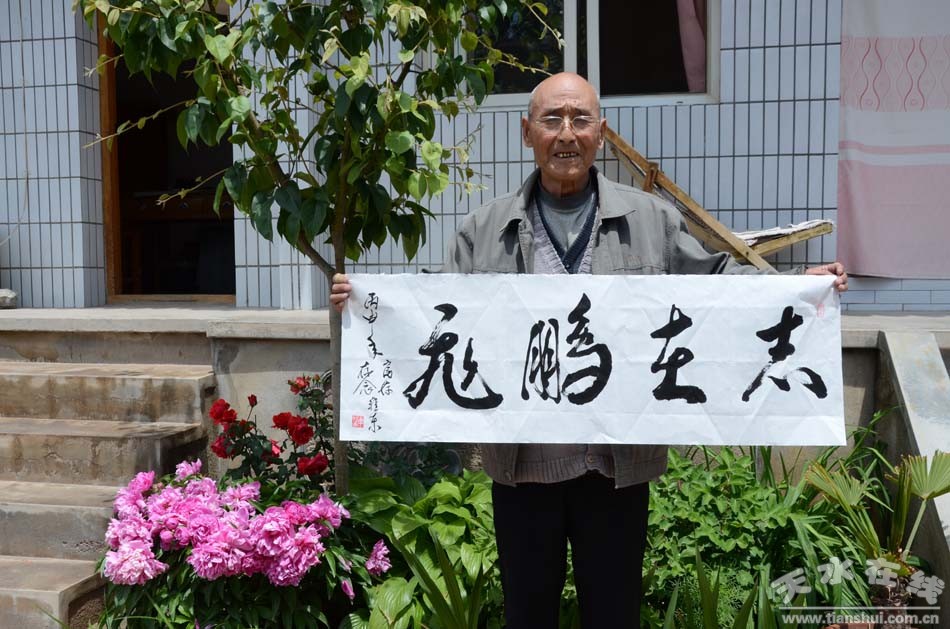 志在鵬飛
丙申年
存念
天水在线
www.tianshui.com.cn